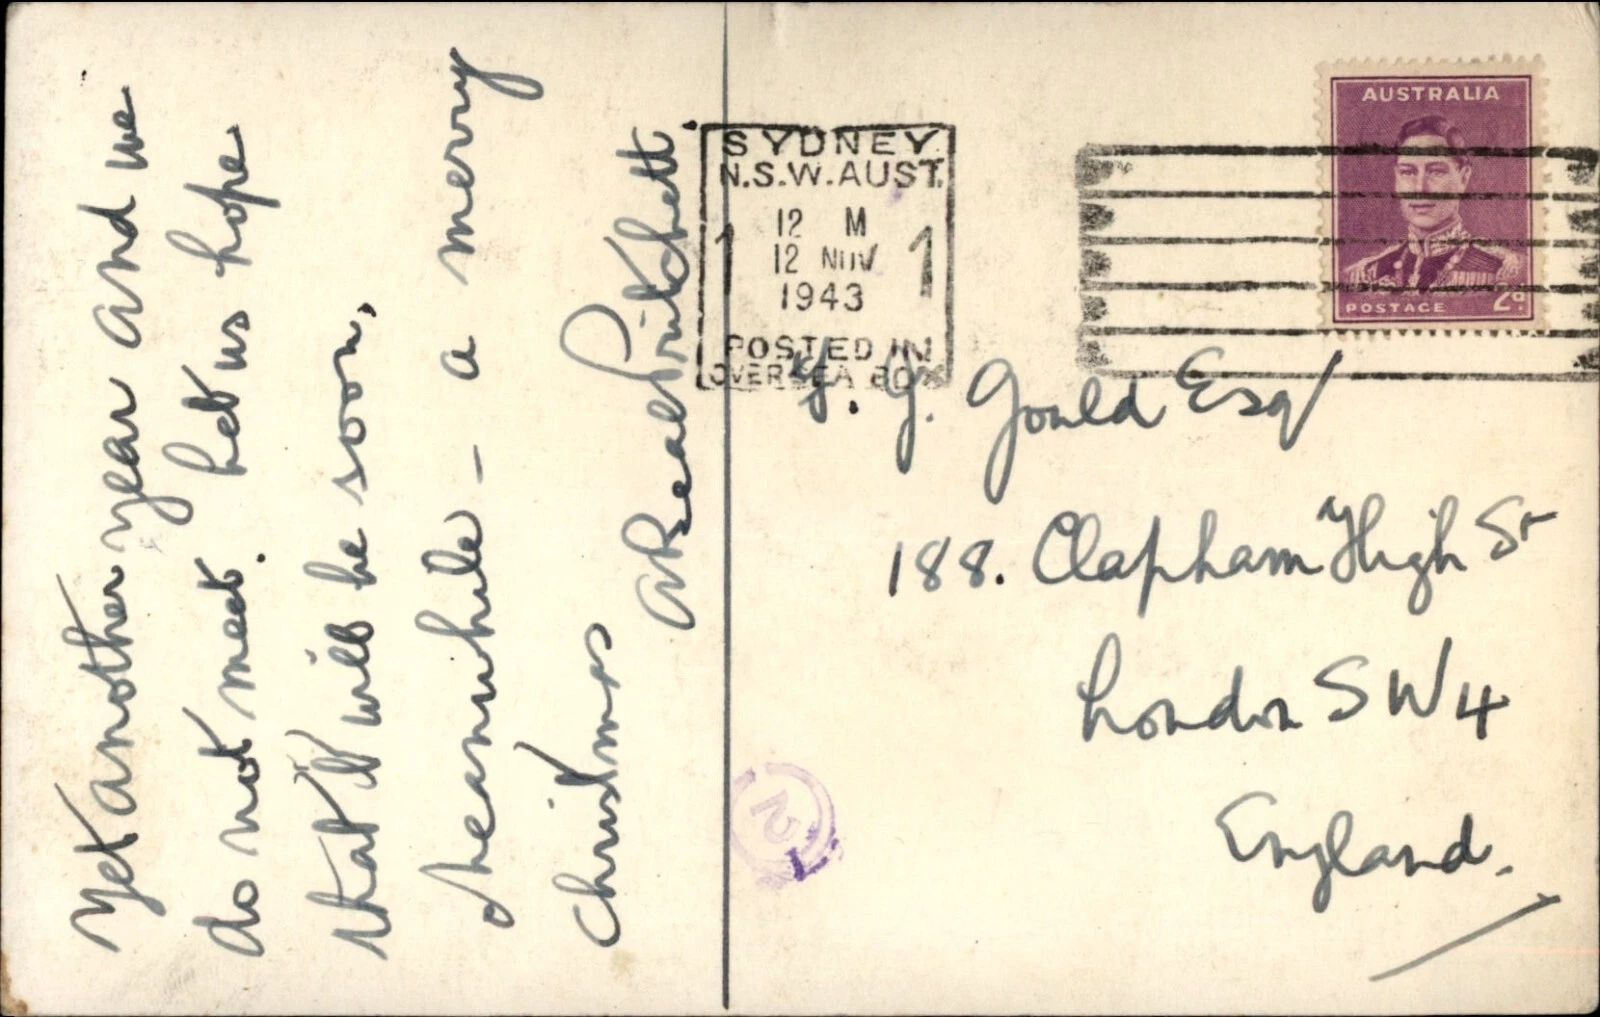 Yet another year and we
do not meet. Let us hope
that it will be soon,
Meanwhile - a merry
Christmas
A Beal Pritchett
SYDNEY
N.S.W. AUST.
1 12 M 1
12 NOV
1943
POSTED IN
OVERSEA BOX
AUSTRALIA
POSTAGE 2d.
Y. G. Gould Esq
188. Clapham High St
London SW4
England.